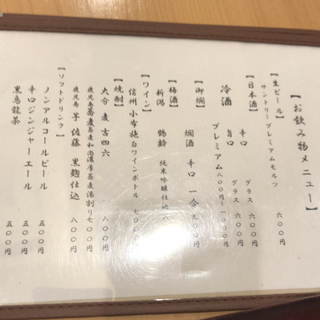 【お飲み物メニュー】
【生ビール】
サントリープレミアムモルツ 六〇〇円
【日本酒】
辛口 グラス 六〇〇円
旨口 グラス 六〇〇円
冷酒 プレミアム 八〇〇円
【御燗】
燗酒 辛口 一合
【梅酒】
新潟 鶴齢 純米吟醸仕込
【ワイン】
信州小布施 白ワインボトル
【焼酎】
大分 麦 吉四六
鹿児島 蕎麦 蕎麦湯割り 七〇〇円
鹿児島 芋 佐藤 黒麹仕込 八〇〇円
【ソフトドリンク】
ノンアルコールビール 五〇〇円
辛口ジンジャーエール 五〇〇円
黒烏龍茶 五〇〇円